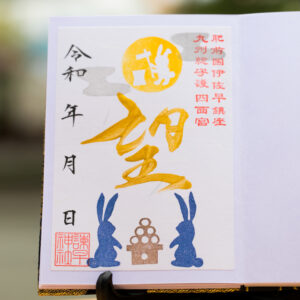 肥前國伊佐早鎮座
九州総守護 四面宮
望
令和 年 月 日
諫早神社